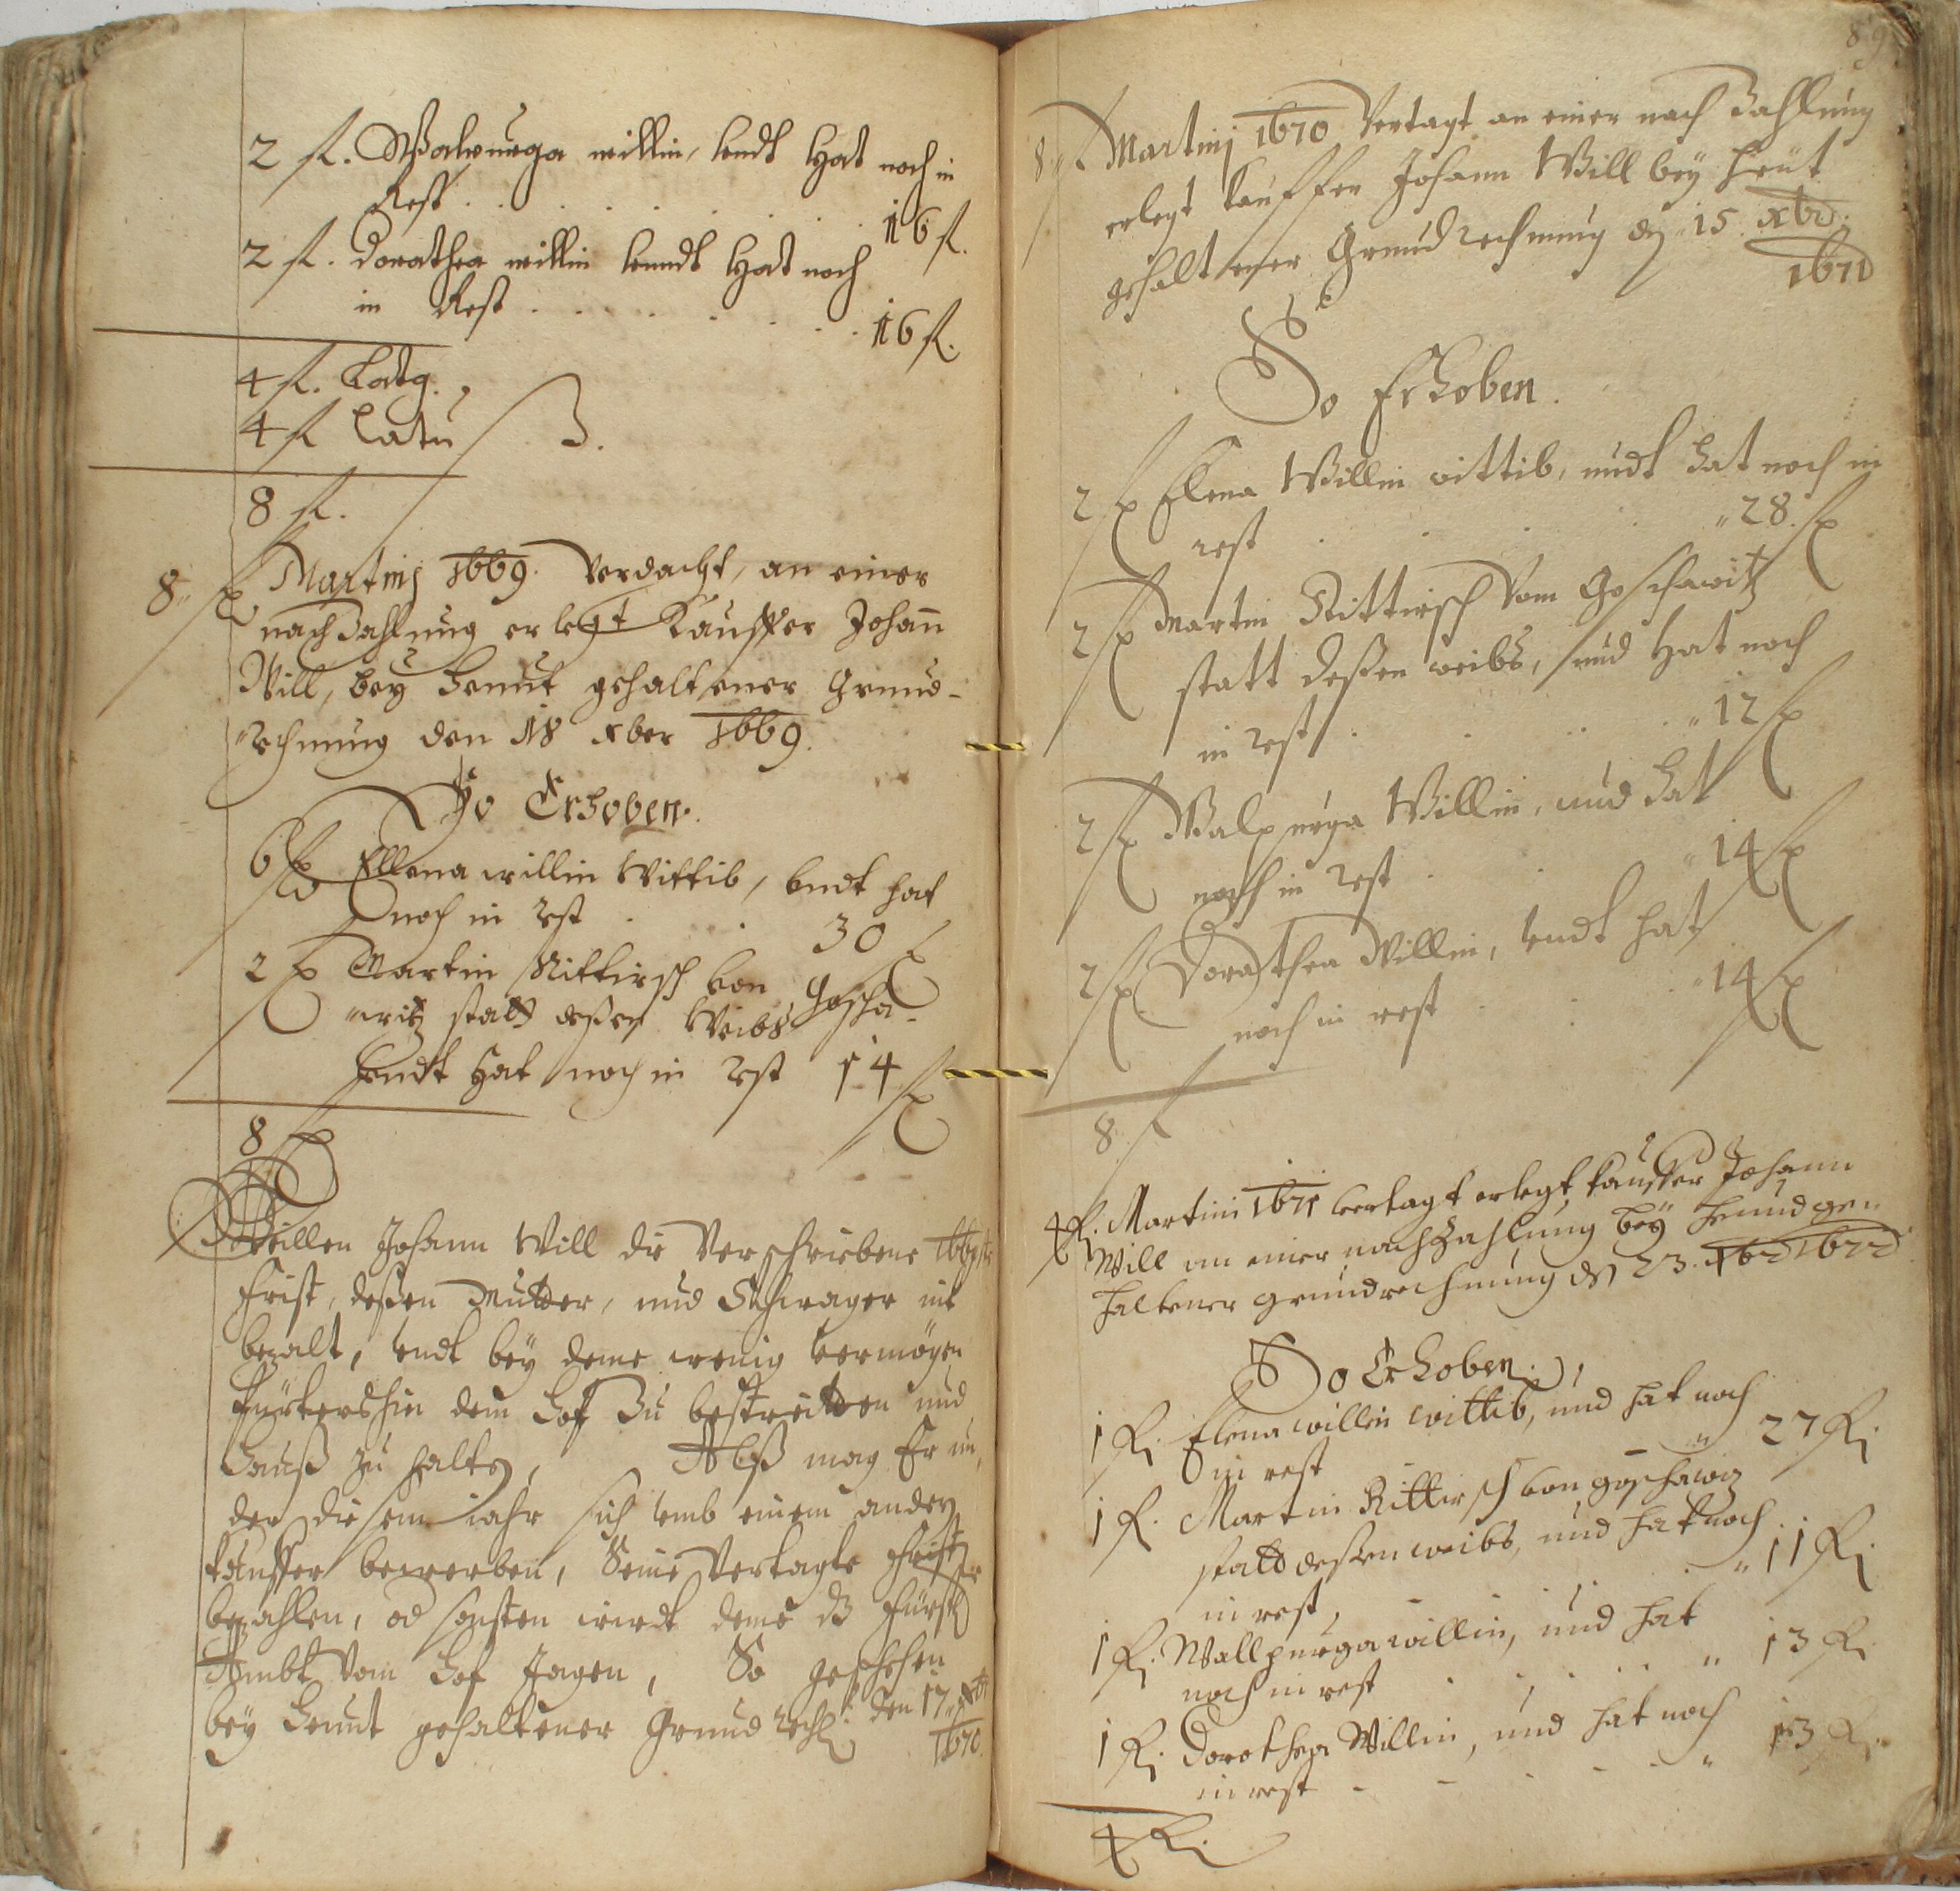 2 fl. Walpurga willin, vndt Hat noch in
Rest . . . . . . 16 fl.
2 fl. Dorathea willin vnndt Hat noch
in Rest . . . . . . 16 fl.
4 fl. Latg.
4 fl Latu
8 fl.
8 fl Martinj 1669. Verdacht, an einer
nachZahlung erlegt Kauffer Johann
Will, bey Heuut gehaltener Grund-
rechnung den 18 xber 1669.
So Erhoben.
6 fl Ellena willin Wittib, vndt hat
noch in rest . . 30 fl
2 fl Martin Rittirsch von Goscha-
witz statt deßen Weibs
vndt Hat noch in rest 14 fl
8 fl
Weillen Johann Will die Verschriebene 1669
Frist, deßen Mutter, und Schwager nit
bezalt, vndt bey deme wenig vermögen
fürtershin dem Hof Zu bestreitten und
Hauß zu halten, Alß mag Er in
der diesem iahr sich vmb einem andern
Kauffer bewerben, Seine Vertagte Frist
bezahlen, od sonsten wirdt deme dz Fürstl
Ambt Vom Hof Jagen, So geschehen
bey Heuut gehaltener Grund rech: den 17 xbr
1670.
89
8 fl Martinj 1670 Vertagt an einer nach Zahlung
erlegt Kauffer Johann Will bey heut
gehaltener Grundrechnung dn 15 xbr:
1671
So Erhoben.
2 fl Elena Willin wittib, undt hat noch in
rest . . . 28 fl
2 fl Martin Rittirsch Vom Goschawitz
statt deßen weibs, und Hat noch
in rest . . . 12 fl
2 fl Walpurga Willin, und hat
noch in rest . . 14 fl
2 fl Dorathea Willin, vndt hat
noch in rest . . 14 fl
8 fl
4 fl. Martini 1671 vertagt erlegt kauffer Johann
Will an einer nachzahlung bey heund ge
haltener grundrechnung dn 23. xbr 1672
So Erhoben.
1 fl. Elena willin wittib, und hat noch
in rest 27 fl.
1 fl. Martin Rittirsch von goschawiz
statt deßen weibs, und hat noch
in rest, 11 fl.
1 fl. Wallpurga willin, und hat
noch in rest . . . . 13 fl.
1 fl. Dorothea Willin, und hat noch
in rest - - - - - 13 fl.
4 fl.